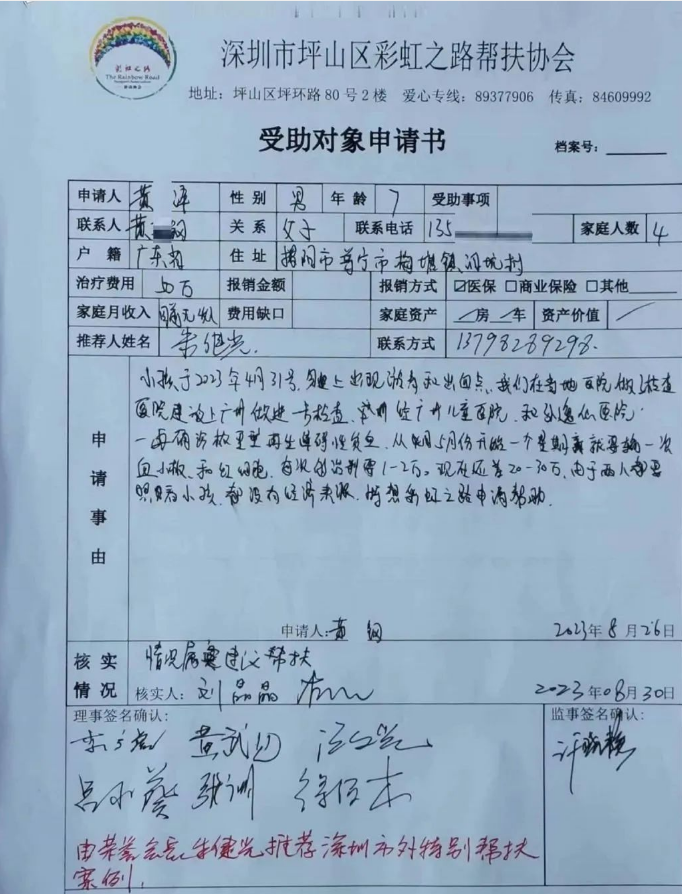 彩虹之路
The Rainbow Road
深圳市坪山区彩虹之路帮扶协会
地址：坪山区坪环路80号2楼 爱心专线：89377906 传真：84609992
受助对象申请书
档案号：
申请人 黄 泽 性别 男 年龄 7 受助事项
联系人 黄 关系 父子 联系电话 135 家庭人数 4
户籍 广东 住址 揭阳市普宁市梅塘镇 坑村
治疗费用 万 报销金额 报销方式 ☑医保 □商业保险 □其他
家庭月收入 暂无收入 费用缺口 家庭资产 房 车 资产价值
推荐人姓名 朱健光 联系方式 13798289298.
申请事由
小孩于2023年4月31号，身上出现淤青和出血点，我们在当地医院做了检查
医院建议上广州做进一步检查， 经广州儿童医院，和孙逸仙医院
一再确 极重型再生障碍性贫血，从 5月份开始一个星期 要输一次
血小板，和红细胞，每次 要1-2万，现在还差20-30万，由于两人都要
照顾小孩，都没有经济来源，特想彩虹之路申请帮助.
申请人：黄 2023年8月26日
核实情况
情况属实建议帮扶
核实人：刘晶晶 2023年08月30日
理事签名确认： 监事签名确认：
由荣誉会长朱健光推荐深圳市外特别帮扶
案例.